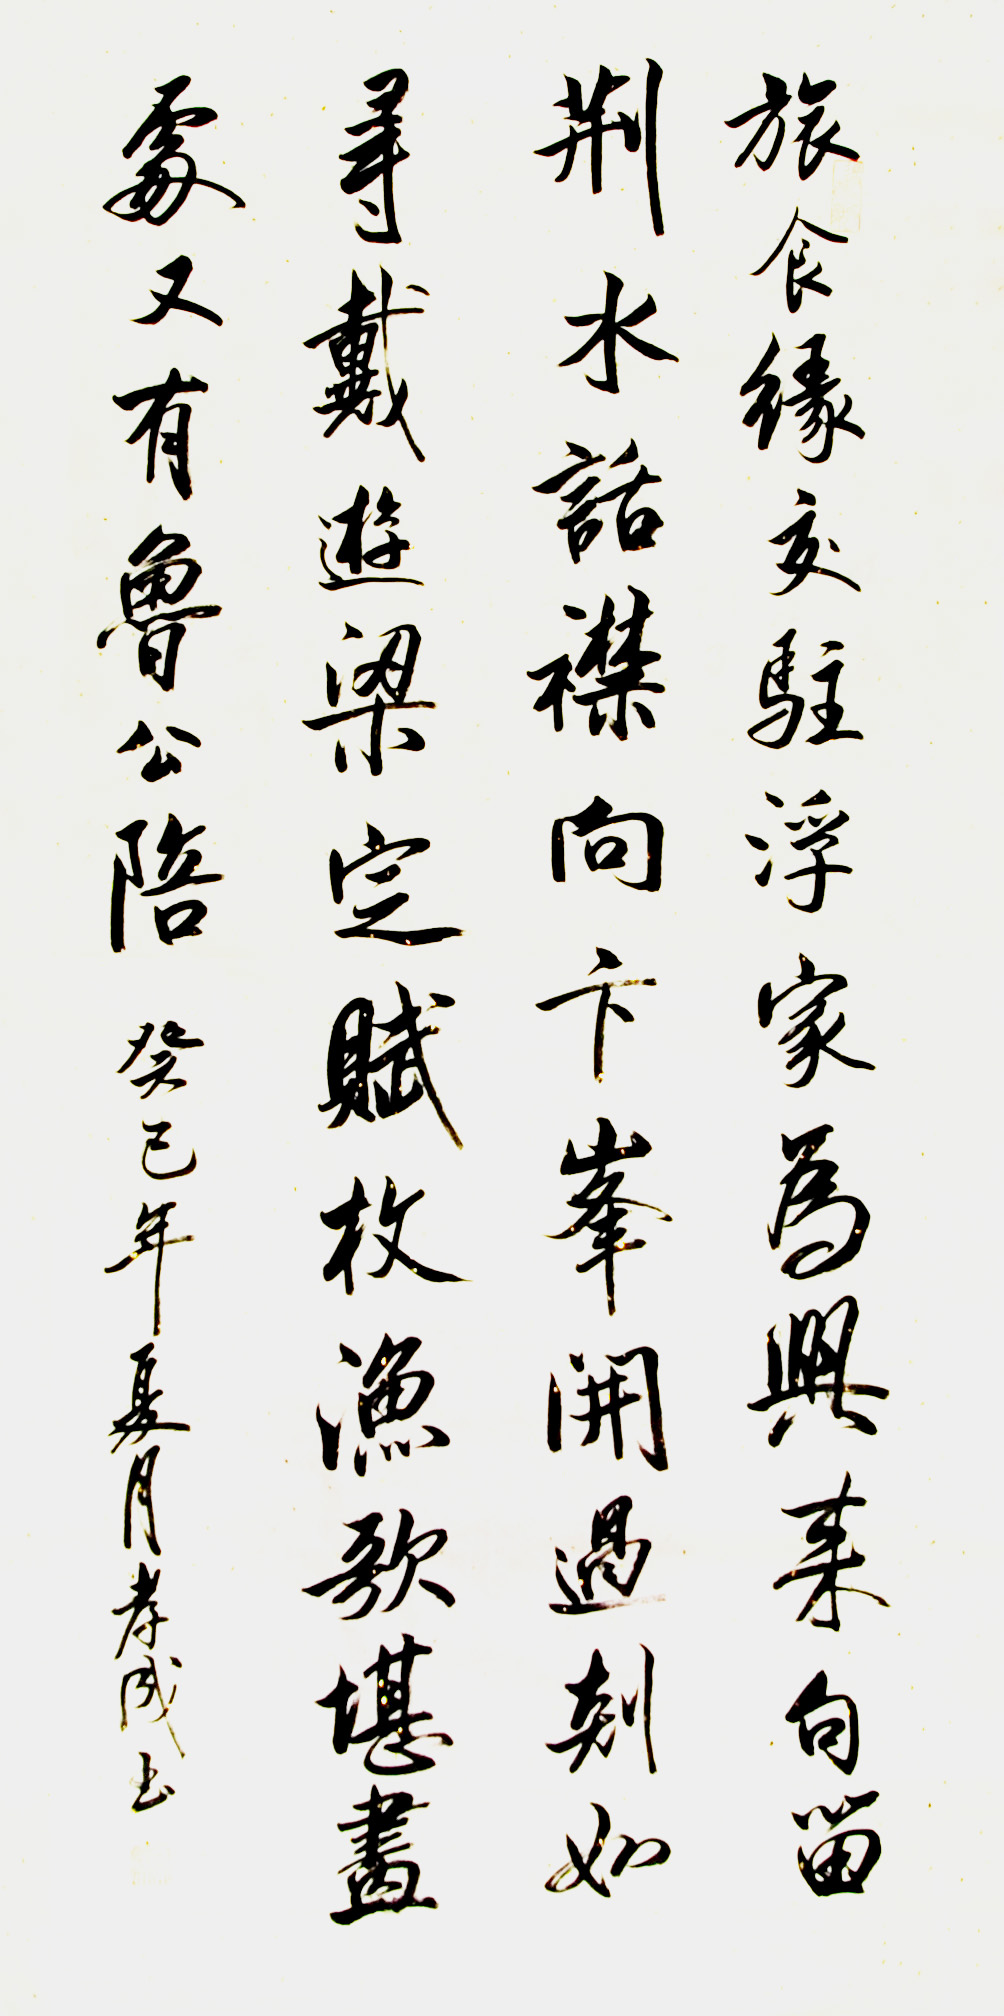 旅食緣交駐浮家為興来句留
荆水話襟向卞峯開過剡如
尋戴遊梁定賦枚漁歌堪畫
處又有魯公陪
癸巳年夏月孝成书